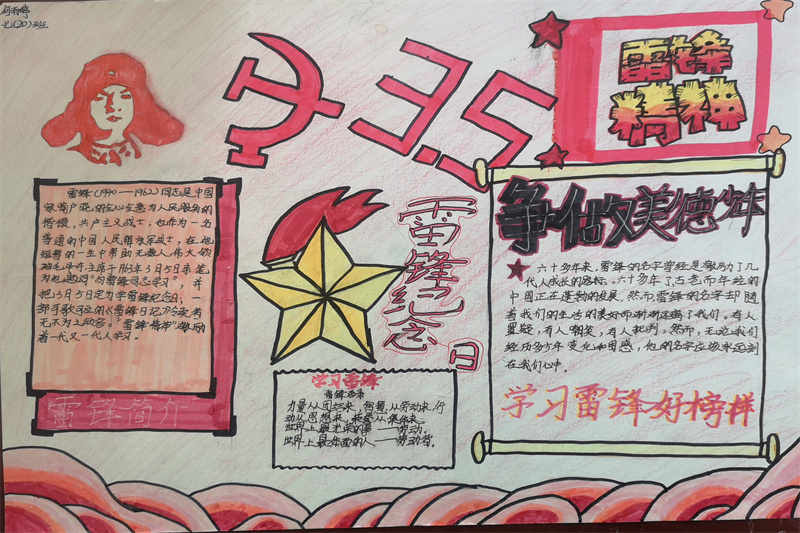 七(20)班
3.5
雷锋
精神
雷锋(1940—1962)同志是中国
家喻户晓的全心全意为人民服务的
楷模,共产主义战士,也作为一名
普通的中国人民解放军战士,在他
短暂的一生中帮助无数人,伟大领
袖毛泽东主席于1963年3月5日亲笔
为他题词"向雷锋同志学习",并
把3月5日定为学雷锋纪念日;一
部可歌可泣的《雷锋日记》令读者
无不为之动容。"雷锋精神"激励
着一代又一代人学习。
雷锋简介
雷锋纪念日
学习雷锋
力量从团结来,智慧从劳动来,行
动从思想来,荣誉从集体来。
世界上最光荣的事——劳动。
世界上最体面的人——劳动者。
争做美德少年
六十多年来,雷锋的名字曾经是激励了几
代人成长的路标。六十多年了古老而年轻的
中国正在蓬勃的发展,然而雷锋的名字却随
着我们的生活的美好而渐渐远离了我们。有人
置疑,有人嘲笑,有人批判。然而,无论我们
经历多少年变化和困惑,他的名字应该永远刻
在我们心中。
学习雷锋好榜样